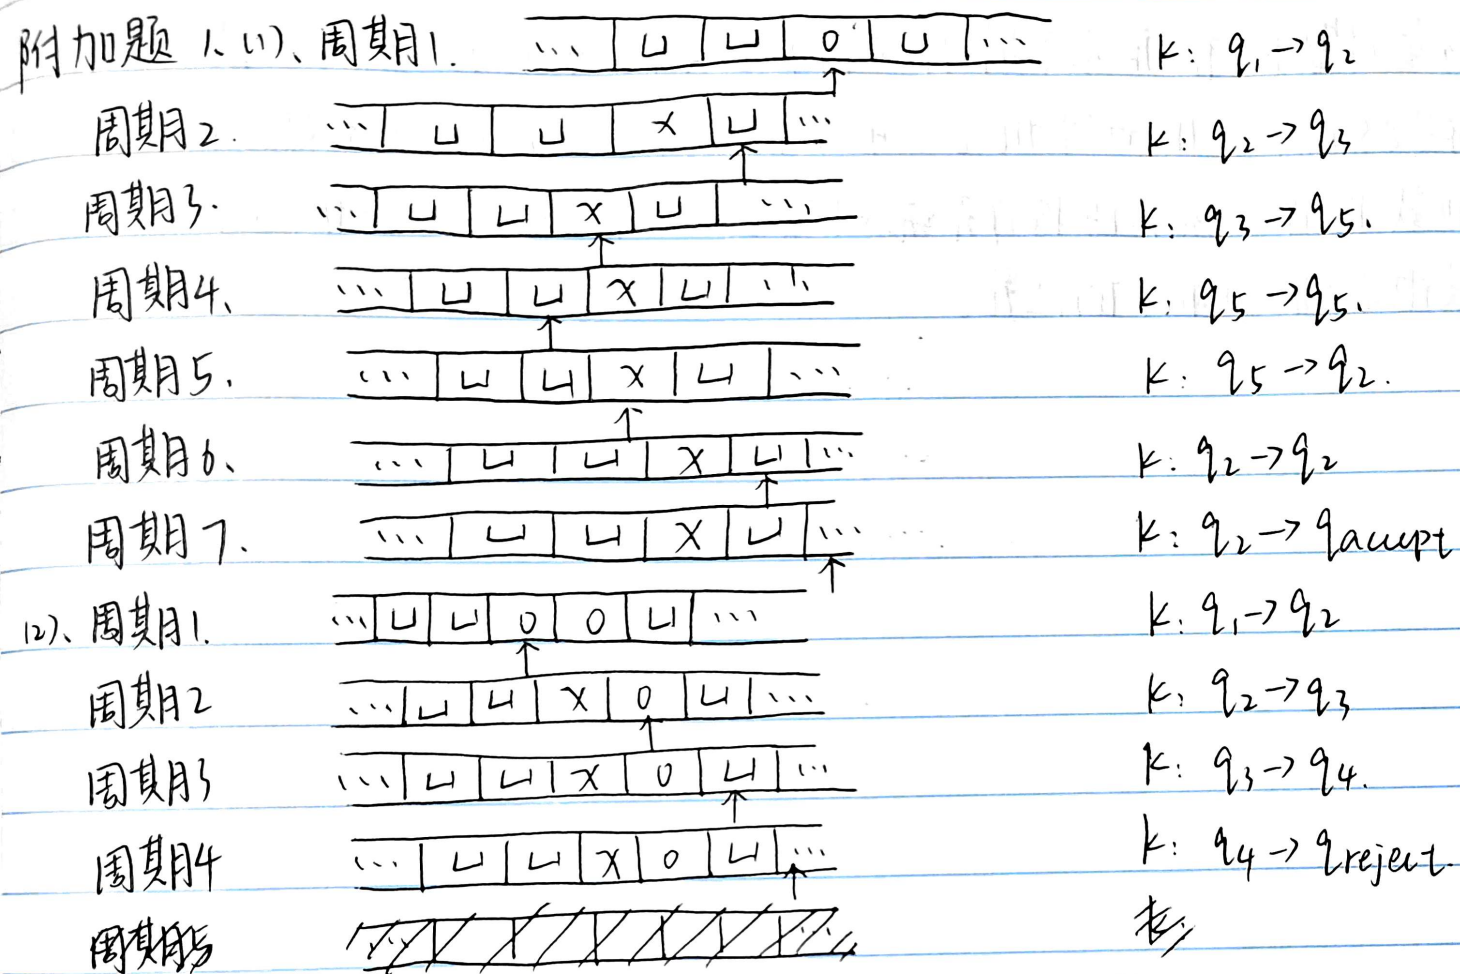 附加题 1、(1)、周期1. … ⊔ ⊔ 0 ⊔ … K: q₁→q₂
周期2. … ⊔ ⊔ x ⊔ … K: q₂→q₃
周期3. … ⊔ ⊔ x ⊔ … K: q₃→q₅.
周期4、 … ⊔ ⊔ x ⊔ … K: q₅→q₅.
周期5. … ⊔ ⊔ x ⊔ … K: q₅→q₂.
周期6、 … ⊔ ⊔ x ⊔ … K: q₂→q₂
周期7. … ⊔ ⊔ x ⊔ … K: q₂→qaccept
(2)、周期1. … ⊔ ⊔ 0 0 ⊔ … K: q₁→q₂
周期2 … ⊔ ⊔ x 0 ⊔ … K: q₂→q₃
周期3 … ⊔ ⊔ x 0 ⊔ … K: q₃→q₄.
周期4 … ⊔ ⊔ x 0 ⊔ … K: q₄→qreject.
周期5